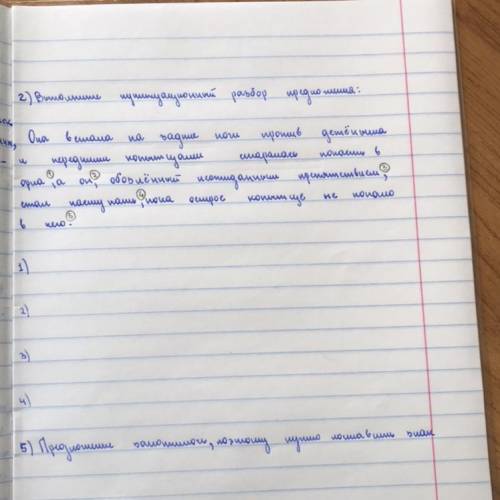 2) Выполните пунктуационный разбор предложения:
Она встала на задние ноги против детёныша
и передними копытцами старалась попасть в
орла①, а он,② обозлённый неожиданным препятствием,③
стал наступать④, пока острое копытце не попало
в него.⑤
1)
2)
3)
4)
5) Предложение закончилось, поэтому нужно поставить знак